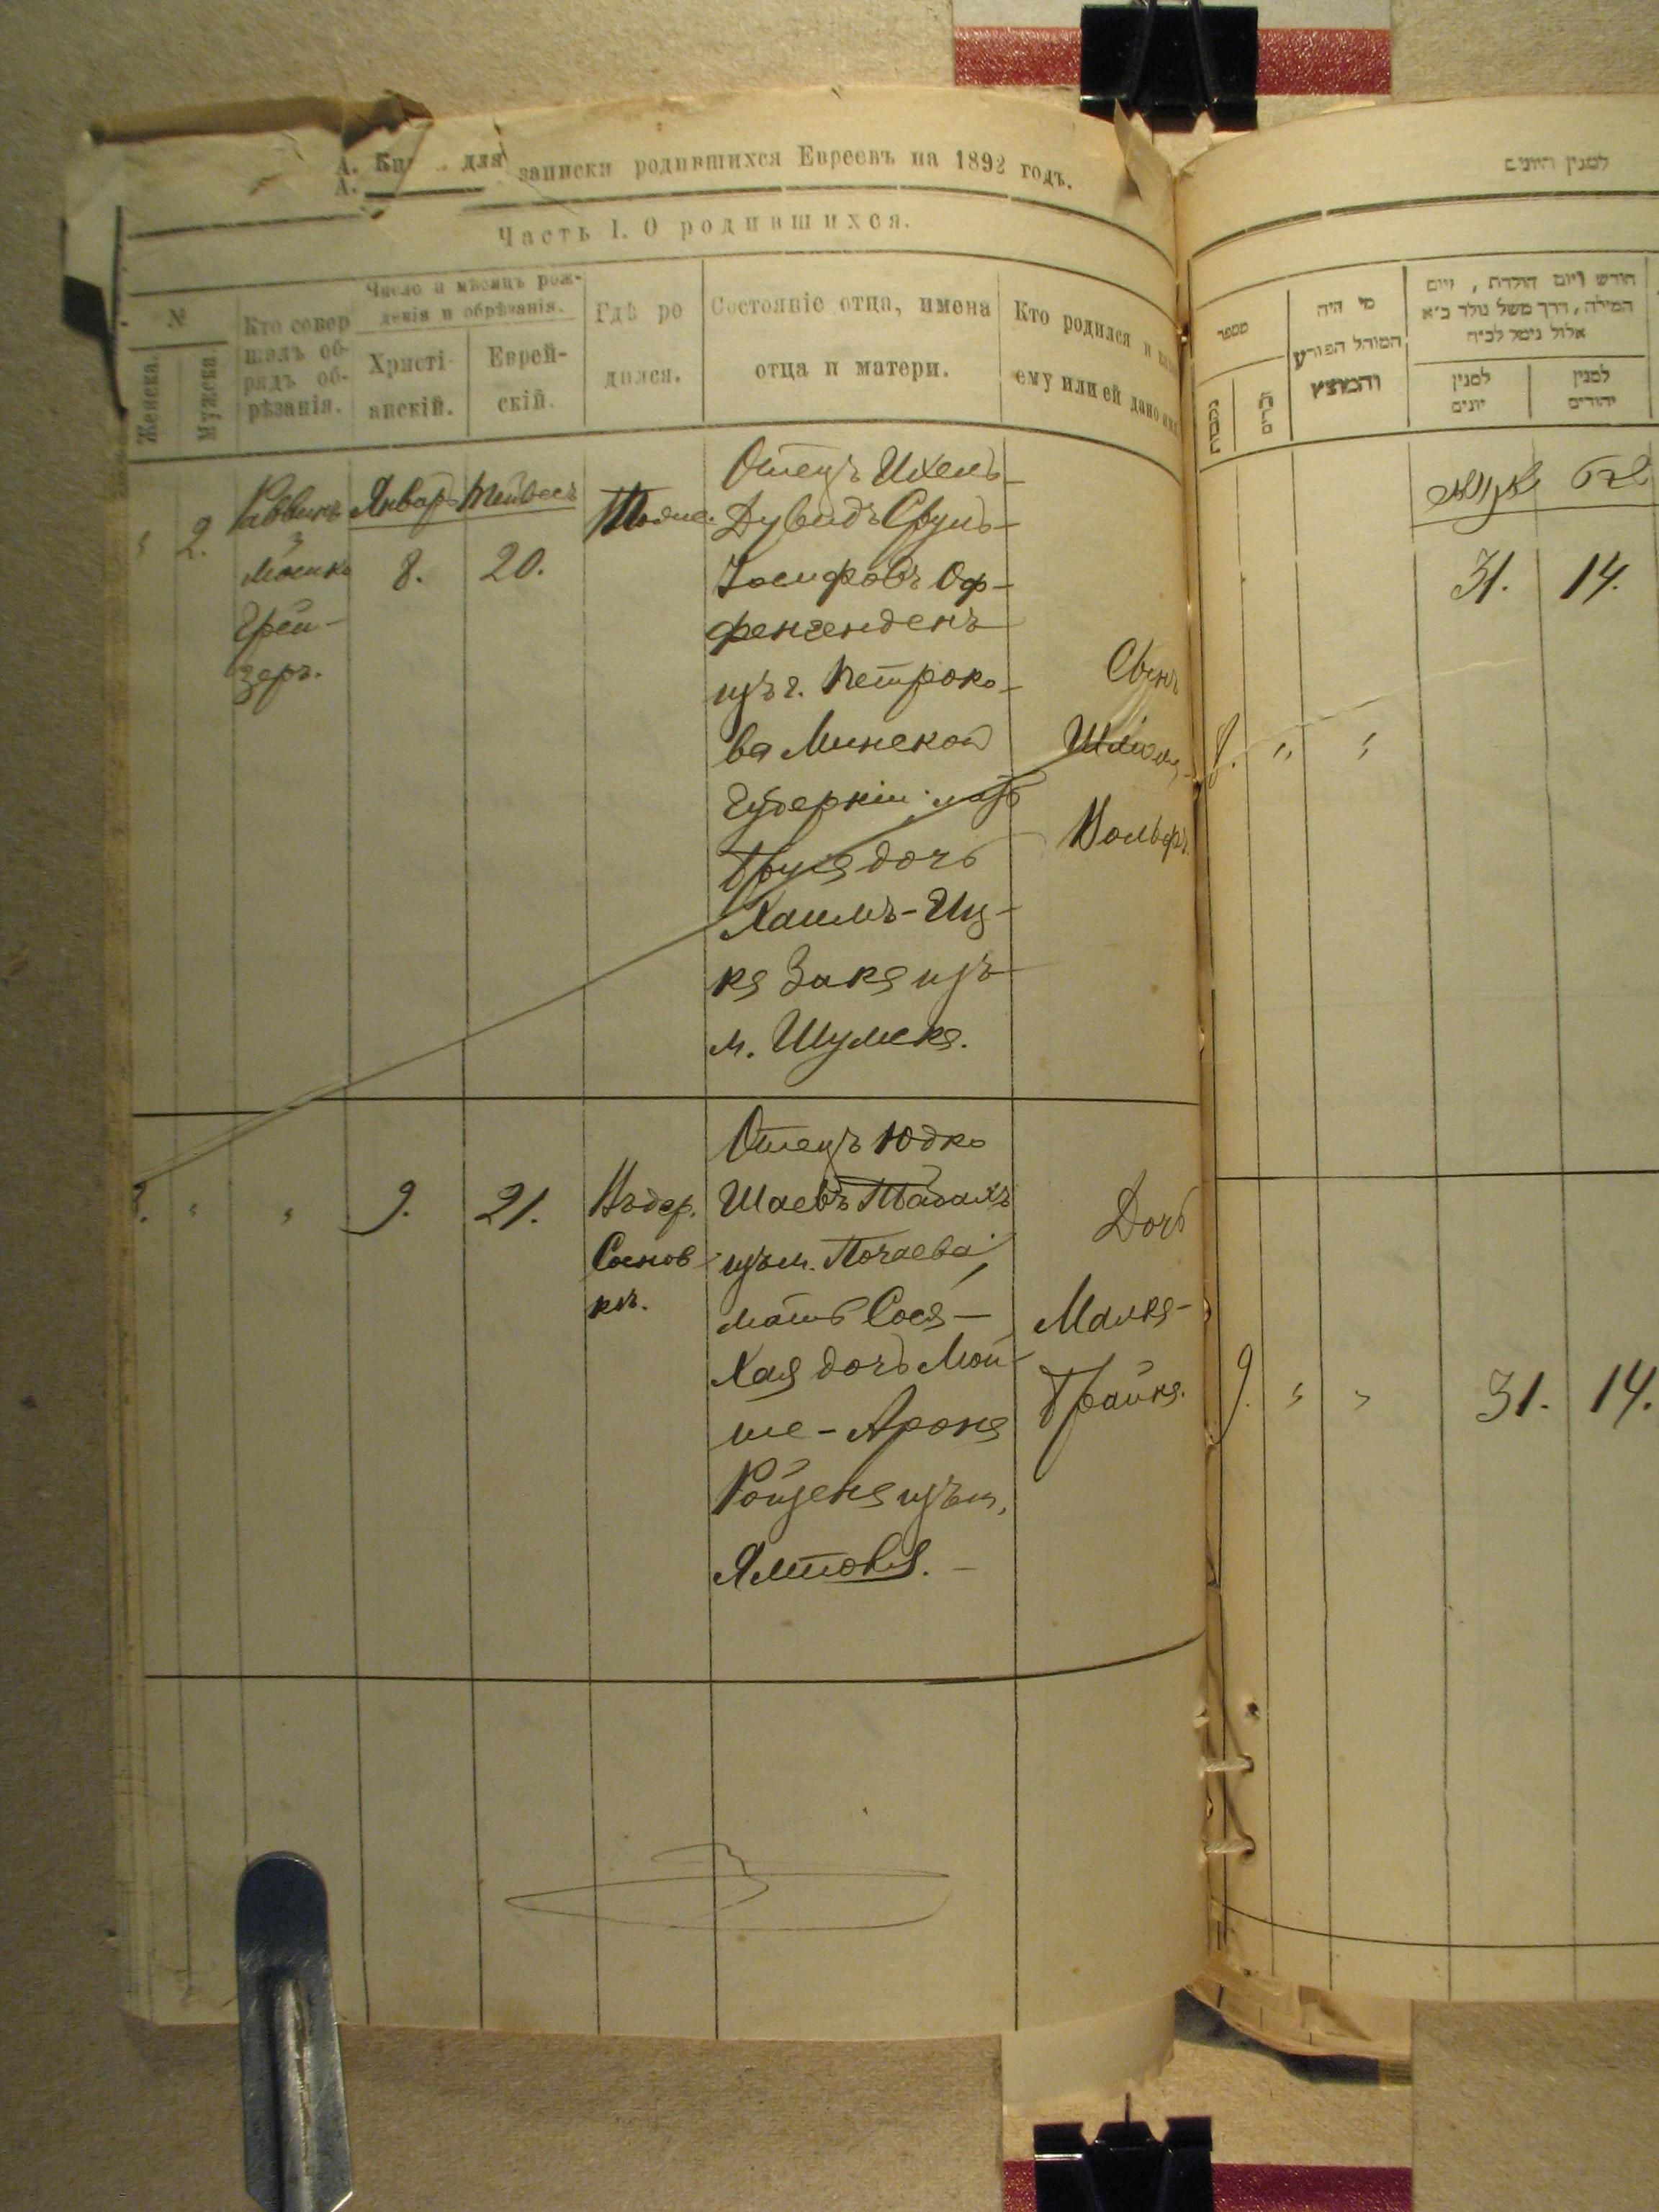 А. Кн для записки родившихся Евреевъ на 1892 годъ.
А.
Часть I. О родившихся.
№
Женска.
Мужска.
Кто совер
шалъ об-
рядъ об-
рѣзанія.
Число и мѣсяцъ рож-
денія и обрѣзанія.
Христі-
анскій.
Еврей-
скій.
Гдѣ ро
дился.
Состояніе отца, имена
отца и матери.
Кто родился и
ему или ей дано
2.
Раввинъ
Мошко
Грей-
зеръ.
Январ
8.
Тейвесъ
20.
Отецъ Ихель-
Дувидъ Сруль-
Іосифовъ Оф-
фенгенденъ
изъ г. Петроко-
ва Минской
Губерніи мать
Бруха дочь
Хаимъ-Иц-
ка Зака изъ
м. Шумска.
Сынъ
Вольфъ.
9.
21.
Въ дер.
Соснов
кѣ.
Отецъ Юдко
Шаевъ
изъ м. Почаева,
мать Сося-
Хая дочь Мой-
ше-Арона
Ройзена изъ м.
Дочь
Малка-
Брайна.
למנין היונים
מספר
נקבות
זכרים
מי היה
המוהל הפורע
והמוצץ
חודש ויום הולדת, ויום
המילה, דרך משל נולד כ״א
אלול נימל לכ״ח
למנין
יונים
למנין
יהודים
טבת
8. " "
31. 14.
9. " "
31. 14.